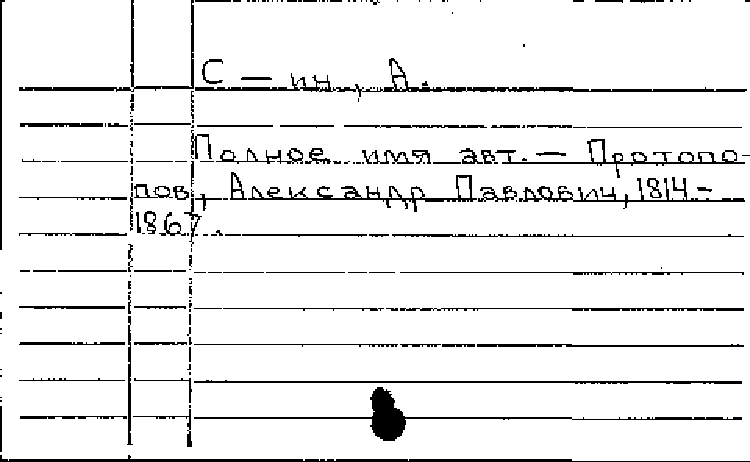 С — ин, А.
Полное имя авт. — Протопо-
пов, Александр Павлович, 1814-
1867.